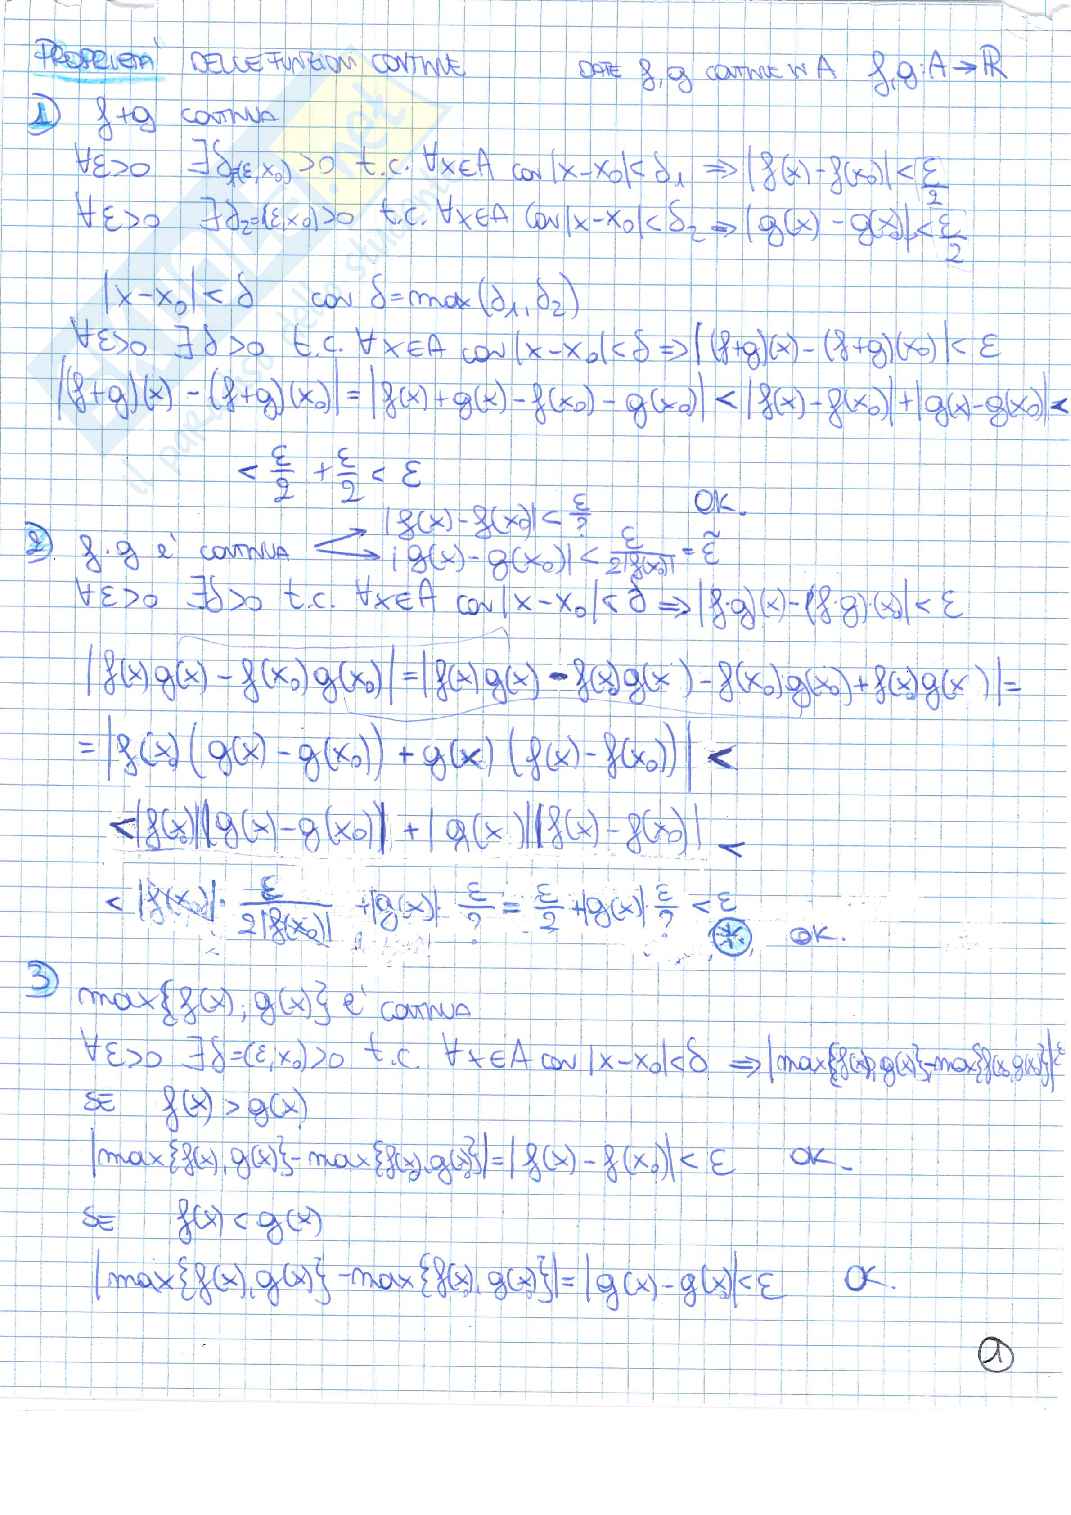 PROPRIETA' DELLE FUNZIONI CONTINUE DATE f, g CONTINUE IN A f, g: A → ℝ
1) f+g CONTINUA
∀ε<0 ∃δ₁=(ε,x₀)>0 t.c. ∀x∈A con |x-x₀|<δ₁ ⇒ |f(x)-f(x₀)|<ε/2
∀ε<0 ∃δ₂=(ε,x₀)>0 t.c. ∀x∈A con |x-x₀|<δ₂ ⇒ |g(x)-g(x₀)|<ε/2
|x-x₀|<δ con δ=max(δ₁,δ₂)
∀ε>0 ∃δ>0 t.c. ∀x∈A con |x-x₀|<δ ⇒ |(f+g)(x)-(f+g)(x₀)|<ε
|(f+g)(x)-(f+g)(x₀)|=|f(x)+g(x)-f(x₀)-g(x₀)|<|f(x)-f(x₀)|+|g(x)-g(x₀)|<
<ε/2+ε/2<ε OK.
|f(x)-f(x₀)|<ε/?
2) f·g e' CONTINUA |g(x)-g(x₀)|<ε/2|f(x₀)|=ε̃
∀ε>0 ∃δ>0 t.c. ∀x∈A con |x-x₀|<δ ⇒ |(f·g)(x)-(f·g)·(x₀)|<ε
|f(x)g(x)-f(x₀)g(x₀)|=|f(x)g(x)-f(x₀)g(x)-f(x₀)g(x₀)+f(x₀)g(x)|=
=|f(x₀)(g(x)-g(x₀))+g(x)(f(x)-f(x₀))|<
<|f(x₀)||g(x)-g(x₀)|+|g(x)||f(x)-f(x₀)|<
<|f(x₀)|·ε/2|f(x₀)|+|g(x)|·ε/?=ε/2+|g(x)|ε/?<ε (*) OK.
3) max{f(x),g(x)} e' CONTINUA
∀ε>0 ∃δ=(ε,x₀)>0 t.c. ∀x∈A con |x-x₀|<δ ⇒ |max{f(x),g(x)}-max{f(x₀),g(x₀)}|<ε
SE f(x)>g(x)
|max{f(x),g(x)}-max{f(x₀),g(x₀)}|=|f(x)-f(x₀)|<ε OK.
SE f(x)<g(x)
|max{f(x),g(x)}-max{f(x₀),g(x₀)}|=|g(x)-g(x₀)|<ε OK.
1